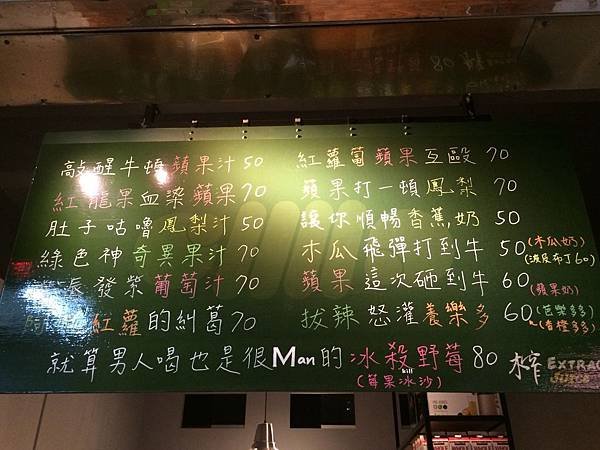 敲醒牛頓蘋果汁50
紅龍果血染蘋果70
肚子咕嚕鳳梨汁50
綠色神奇異果汁70
辰發紫葡萄汁70
紅蘿的糾葛70
紅蘿蔔蘋果互毆70
蘋果打一頓鳳梨70
讓你順暢香蕉奶50
木瓜飛彈打到牛50(木瓜奶)
蘋果這次砸到牛60(蘋果奶)
拔辣怒灌養樂多60(芭樂多多)
(香橙多多)
就算男人喝也是很Man的冰殺野莓80
kill
(莓果冰沙)
木窄 EXTRAC
JUICE